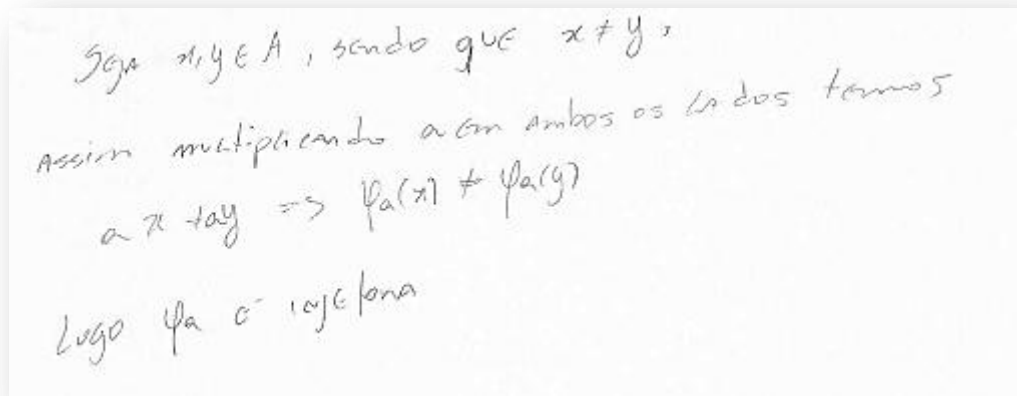 Seja x, y ∈ A, sendo que x ≠ y,
Assim multiplicando a em ambos os lados temos
a x ≠ ay => φa(x) ≠ φa(y)
Logo φa é injetora